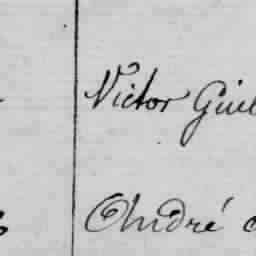 Victor Guil
André